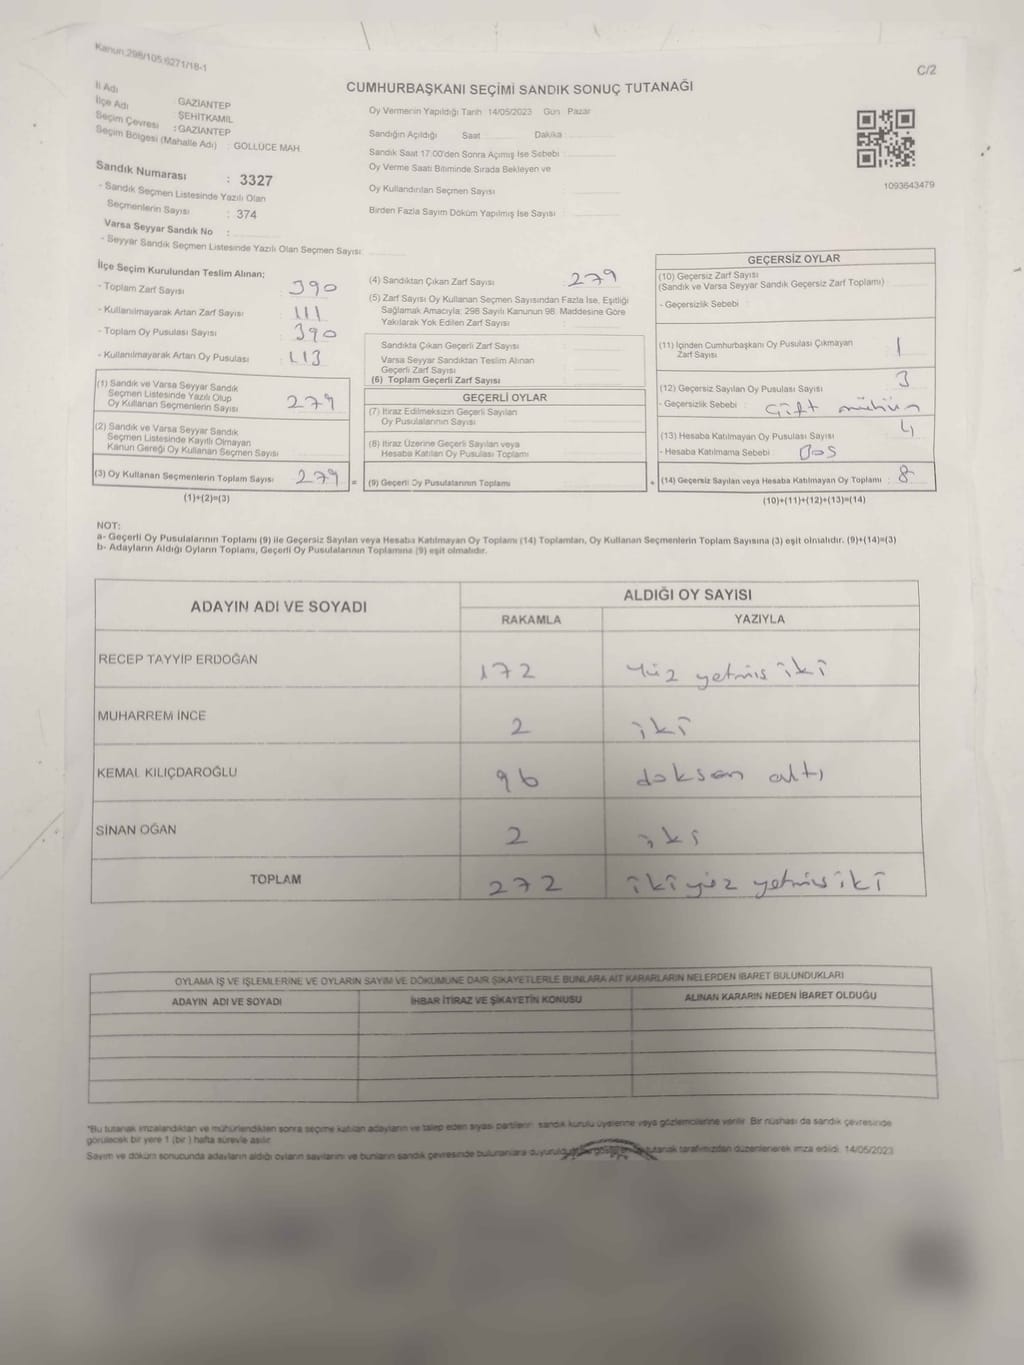 Kanun.298/105:6271/18-1
C/2
CUMHURBAŞKANI SEÇİMİ SANDIK SONUÇ TUTANAĞI
İl Adı : GAZİANTEP
İlçe Adı : ŞEHİTKAMİL
Seçim Çevresi : GAZİANTEP
Seçim Bölgesi (Mahalle Adı) : GÖLLÜCE MAH.
Sandık Numarası : 3327
- Sandık Seçmen Listesinde Yazılı Olan
Seçmenlerin Sayısı : 374
Varsa Seyyar Sandık No :
- Seyyar Sandık Seçmen Listesinde Yazılı Olan Seçmen Sayısı:
Oy Vermenin Yapıldığı Tarih 14/05/2023 Gün Pazar
Sandığın Açıldığı Saat Dakika
Sandık Saat 17:00'den Sonra Açımış İse Sebebi :
Oy Verme Saati Bitiminde Sırada Bekleyen ve
Oy Kullandırılan Seçmen Sayısı :
Birden Fazla Sayım Döküm Yapılmış İse Sayısı :
1093643479
İlçe Seçim Kurulundan Teslim Alınan;
- Toplam Zarf Sayısı : 390
- Kullanılmayarak Artan Zarf Sayısı : 111
- Toplam Oy Pusulası Sayısı : 390
- Kullanılmayarak Artan Oy Pusulası : 113
(1) Sandık ve Varsa Seyyar Sandık
Seçmen Listesinde Yazılı Olup
Oy Kullanan Seçmenlerin Sayısı : 279
(2) Sandık ve Varsa Seyyar Sandık
Seçmen Listesinde Kayıtlı Olmayan
Kanun Gereği Oy Kullanan Seçmen Sayısı :
(3) Oy Kullanan Seçmenlerin Toplam Sayısı : 279
(1)+(2)=(3)
(4) Sandıktan Çıkan Zarf Sayısı : 279
(5) Zarf Sayısı Oy Kullanan Seçmen Sayısından Fazla İse, Eşitliği
Sağlamak Amacıyla; 298 Sayılı Kanunun 98. Maddesine Göre
Yakılarak Yok Edilen Zarf Sayısı :
Sandıkta Çıkan Geçerli Zarf Sayısı :
Varsa Seyyar Sandıktan Teslim Alınan
Geçerli Zarf Sayısı :
(6) Toplam Geçerli Zarf Sayısı :
GEÇERLİ OYLAR
(7) İtiraz Edilmeksizin Geçerli Sayılan
Oy Pusulalarının Sayısı :
(8) İtiraz Üzerine Geçerli Sayılan veya
Hesaba Katılan Oy Pusulası Toplamı :
= (9) Geçerli Oy Pusulalarının Toplamı :
GEÇERSİZ OYLAR
(10) Geçersiz Zarf Sayısı
(Sandık ve Varsa Seyyar Sandık Geçersiz Zarf Toplamı) :
- Geçersizlik Sebebi :
(11) İçinden Cumhurbaşkanı Oy Pusulası Çıkmayan
Zarf Sayısı : 1
(12) Geçersiz Sayılan Oy Pusulası Sayısı : 3
- Geçersizlik Sebebi : Çift mühür
(13) Hesaba Katılmayan Oy Pusulası Sayısı : 4
- Hesaba Katılmama Sebebi : Boş
+ (14) Geçersiz Sayılan veya Hesaba Katılmayan Oy Toplamı : 8
(10)+(11)+(12)+(13)=(14)
NOT:
a- Geçerli Oy Pusulalarının Toplamı (9) ile Geçersiz Sayılan veya Hesaba Katılmayan Oy Toplamı (14) Toplamları, Oy Kullanan Seçmenlerin Toplam Sayısına (3) eşit olmalıdır. (9)+(14)=(3)
b- Adayların Aldığı Oyların Toplamı, Geçerli Oy Pusulalarının Toplamına (9) eşit olmalıdır.
ADAYIN ADI VE SOYADI ALDIĞI OY SAYISI
RAKAMLA YAZIYLA
RECEP TAYYİP ERDOĞAN 172 Yüz yetmiş iki
MUHARREM İNCE 2 iki
KEMAL KILIÇDAROĞLU 96 doksan altı
SİNAN OĞAN 2 iki
TOPLAM 272 iki yüz yetmiş iki
OYLAMA İŞ VE İŞLEMLERİNE VE OYLARIN SAYIM VE DÖKÜMÜNE DAİR ŞİKAYETLERLE BUNLARA AİT KARARLARIN NELERDEN İBARET BULUNDUKLARI
ADAYIN ADI VE SOYADI İHBAR İTİRAZ VE ŞİKAYETİN KONUSU ALINAN KARARIN NEDEN İBARET OLDUĞU
"Bu tutanak imzalandıktan ve mühürlendikten sonra seçime katılan adayların ve talep eden siyasi partilerin sandık kurulu üyelerine veya gözlemcilerine verilir. Bir nüshası da sandık çevresinde
görülecek bir yere 1 (bir ) hafta süreyle asılır.
Sayım ve döküm sonucunda adayların aldığı oyların sayılarını ve bunların sandık çevresinde bulunanlara duyurulduğunu tutanak tarafımızdan düzenlenerek imza edildi. 14/05/2023